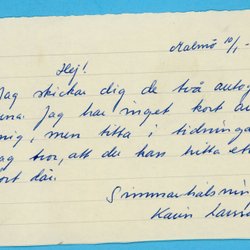 Malmö 10/1-
Hej!
Jag skickar dig de två autog
na. Jag har inget kort av
mig, men titta i tidninga
jag tror, att du kan hitta et
kort där.
Simmarhälsnin
Karin Larss